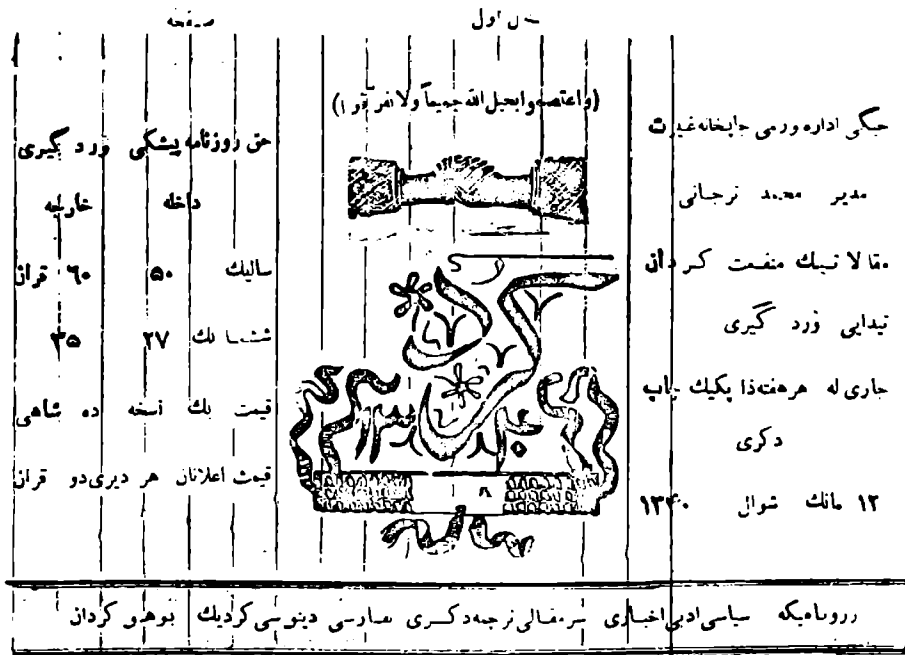 صفحه
سال اول
(واعتصموا بحبل الله جمیعاً ولا تفرقوا)
جیگی اداره ورمی چاپخانه غیرت
مدیر محمد ترجانی
مقالا تیك منفعت کردان
تیدایی ورد گیری
جاری له هرهفته‌دا یکیك چاپ
دکری
۱۲ مانك شوال ۱۳۴۰
حق روزنامه پیشکی ورد گیری
داخله خارجه
سالیك ۵۰ ۶۰ قران
ششمانك ۲۷ ۳۵
قیمت یك نسخه ده شاهی
قیمت اعلانان هر دیری دو قران
کرد
۱۳۴۰
روزنامیکه سیاسی ادبی اخباری سرمقالی ترجمه دکری فارسی دینوسی کردیك بوهو کردان